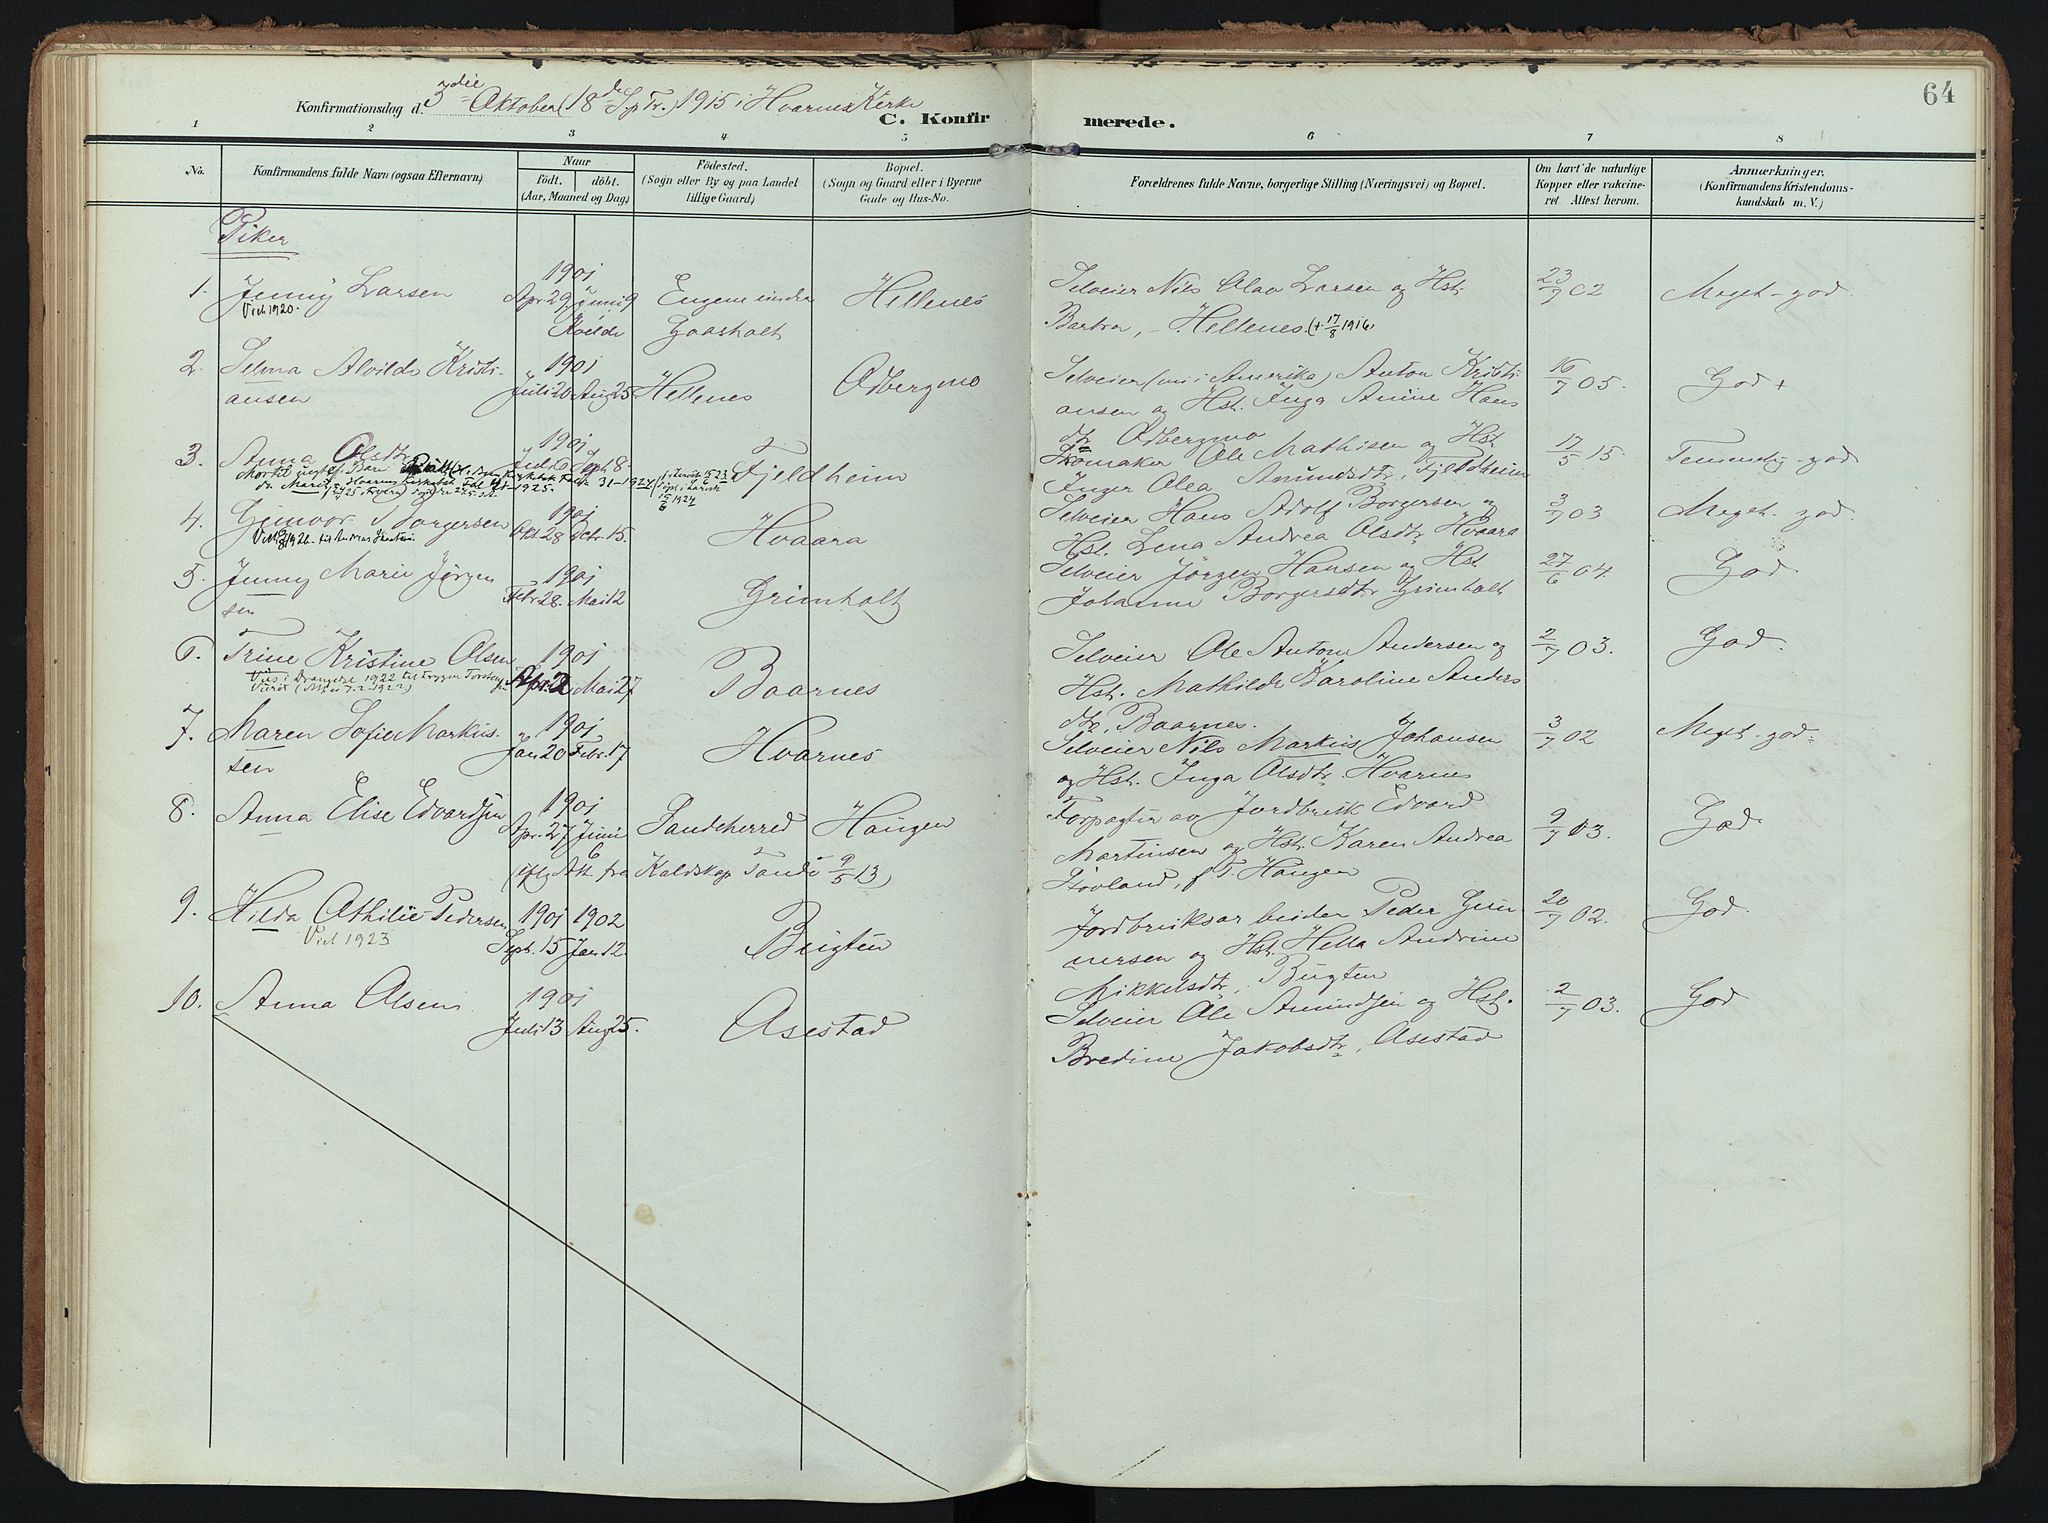 64
Konfirmationsdag d. 3die Oktober (18de S. p. Tr.) 1915 i Hvarnes Kirke
C. Konfirmerede.
1 2 3 4 5 6 7 8
No.
Konfirmandens fulde Navn (ogsaa Efternavn)
Naar
födt. döbt.
(Aar, Maaned og Dag)
Födested.
(Sogn eller By og paa Landet
tillige Gaard)
Bopæl.
(Sogn og Gaard eller i Byerne
Gade og Hus-No.
Forældrenes fulde Navne, borgerlige Stilling (Næringsvei) og Bopæl.
Om havt de naturlige
Kopper eller vakcine-
ret Attest herom.
Anmærkninger.
(Konfirmandens Kristendoms-
kundskab m. V.)
Piker
1. Jenny Larsen 1901 Apr. 29 Juni 9 Hellenes Selveier Nils Olav Larsen og Hst. 23/7 02 Meget-god.
Viet 1920. Kvelde Gaasholt Barbra, Hellenes. (+ 17/8 1916)
2. Selma Alvilde Kristi- 1901 Selveier (nu i Amerika) Anton Kristi- 16/7 05. God +
ansen Juli 20 Aug 25 Hellenes Odbergmo ansen og Hst. Inga Amine Hans
dtr. Odbergmo
3. Anna Olsdtr 1901 Juli 6 Sept. 8. Fjeldheim Skomaker Ole Mathisen og Hst. 17/5 15. Temmelig-god
Inger Olea Amundsdtr, Fjeldheim
4. Gunvor Borgersen 1901 Selveier Hans Adolf Borgersen og 3/7 03 Meget-god.
Okt. 28 Dcbr. 15. Hvaara Hst. Lena Andrea Olsdtr. Hvaara
5. Jenny Marie Jörgen 1901 Selveier Jörgen Hansen og Hst. 27/6 04. God
sen Febr. 28. Mai 12 Grimholt Johanne Borgersdtr. Grimholt
6. Trine Kristine Olsen 1901 Selveier Ole Anton Andersen og 2/7 03. God.
Mai 27 Baarnes Hst. Mathilde Karoline Anders
dtr, Baarnes.
7. Maren Sofie Markus. 1901 Selveier Nils Markus Johansen 3/7 02 Meget-god.
sen Jan 20 Febr. 17 Hvarnes og Hst. Inga Olsdtr. Hvarnes
8. Anna Elise Edvardsen 1901 Forpagter av Jordbruk Edvard God.
Apr. 27 Juni 6 Sandeherred Haugen Martinsen og Hst. Karen Andrea 9/7 03.
(iflg Att. fra Kaldskap. Sandö 9/5 13) T. Haugen
9. Hilda Othilie Pedersen 1901 1902 Jordbruksarbeider Peder Gun 20/7 02. God.
Viet 1923 Sept. 15 Jan 12. Bugten nersen og Hst. Hella Andrine
Mikkelsdtr, Bugten
10. Anna Olsen 1901 Selveier Ole Amundsen og Hst. 2/7 03. God
Juli 13 Aug 25. Asestad Bredine Jakobsdtr, Asestad